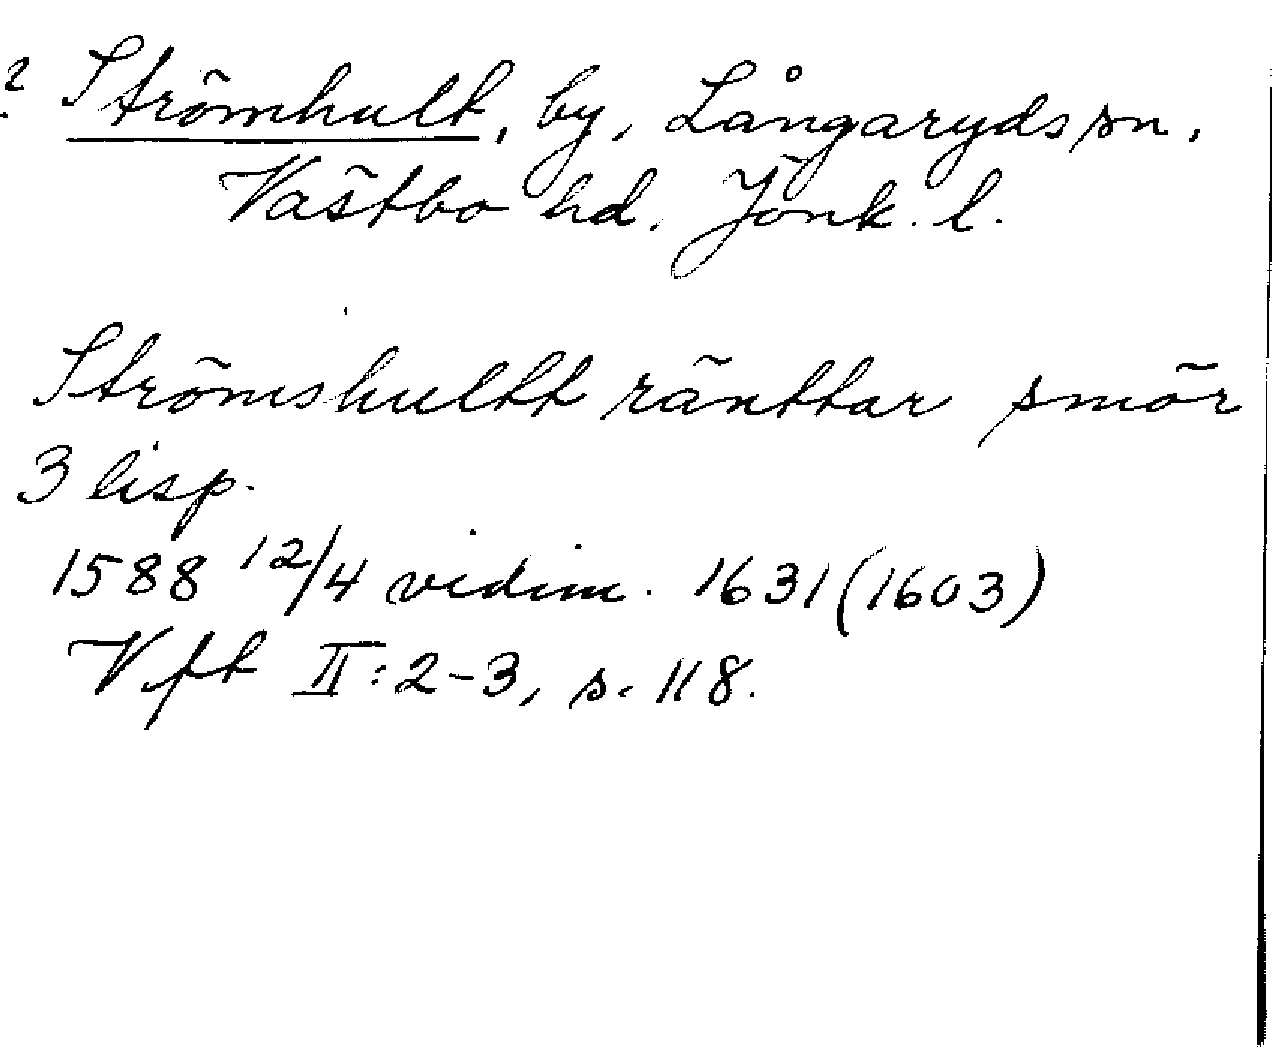 ? Strömhult, by, Långaryds sn,
Västbo hd, Jönk. l.
Strömshultt ränttar smör
3 lisp.
1588 12/4 vidim. 1631 (1603)
Vft II:2-3, s. 118.